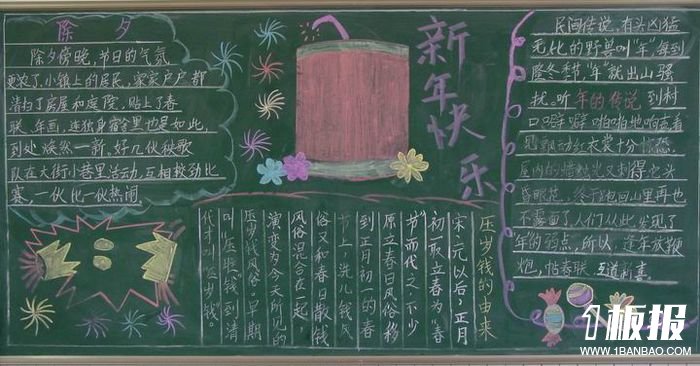 除夕
除夕傍晚，节日的气氛
更浓了，小镇上的居民，家家户户都
清扫了房屋和庭院，贴上了春
联、年画，连独身宿舍里也是如此，
到处焕然一新。好几伙秧歌
队在大街小巷里活动，互相较劲比
赛，一伙比一伙热闹
新年快乐
压岁钱的由来
宋元以后，正月
初一取立春为“春
节”而代之。不少
原立春日风俗移
到正月初一的春
节上，洗儿钱风
俗又和春日散钱
风俗混合在一起，
演变为今天所见的
压岁钱风俗。早期
叫“压胜钱”，到清
代才叫“压岁钱”。
民间传说，有头凶猛
无比的野兽叫“年”每到
隆冬季节，“年”就出山骚
扰。听年的传说到村
口噼噼啪啪地响查看
飘动红衣裳十分惊恐，
屋内的烛光又刺得它头
昏眼花，终于跑回山里再也
不露面了人们从此发现了
年的弱点，所以，逢年放鞭
炮，帖春联 互道新喜
1板报
WWW.1BANBAO.COM